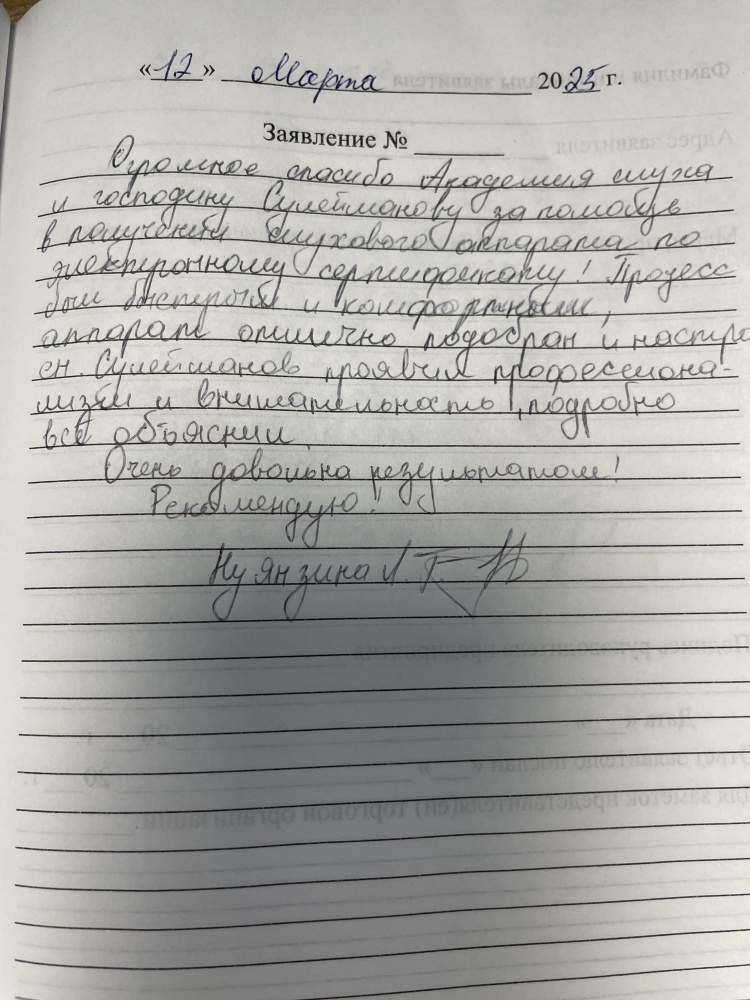 «12» Марта 2025 г.
Заявление № ______
Огромное спасибо Академия слуха
и господину Сулейманову за помощь
в получении слухового аппарата по
электронному сертификату! Процесс
был быстрым и комфортным,
аппарат отлично подобран и настро
ен. Сулейманов проявил профессиона-
лизм и внимательность, подробно
всё объяснил.
Очень довольна результатом!
Рекомендую!!
Нуянзина Л. Г.